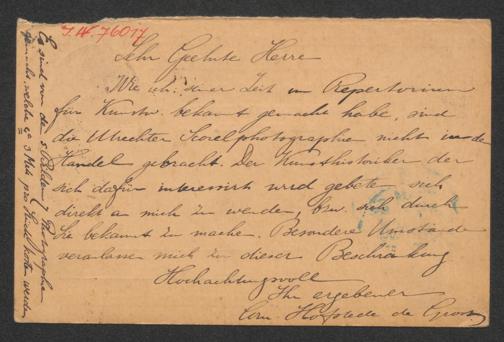 I.N. 76017
Sehr Geehrte Herre
Wie ich seiner Zeit im Repertorium
für Kunstw. bekant gemacht habe, sind
die Utrechter Scorelphotographien nicht in de
Handel gebracht. Der Kunsthistoriker der
sich dafür interessirt wird gebete sich
direkt a mich zu wenden, bzw. sich durch
Sie bekannt zu mache. Besondere Umstände
veranlassen mich zu dieser Beschränkung
Hochachtungsvoll
Ihr ergebener
Corn. Hofstede de Groot
Es sind von de 5 Bilder 7 Photographien
gemacht, welche ca 3 Mk pro Stück koste werden